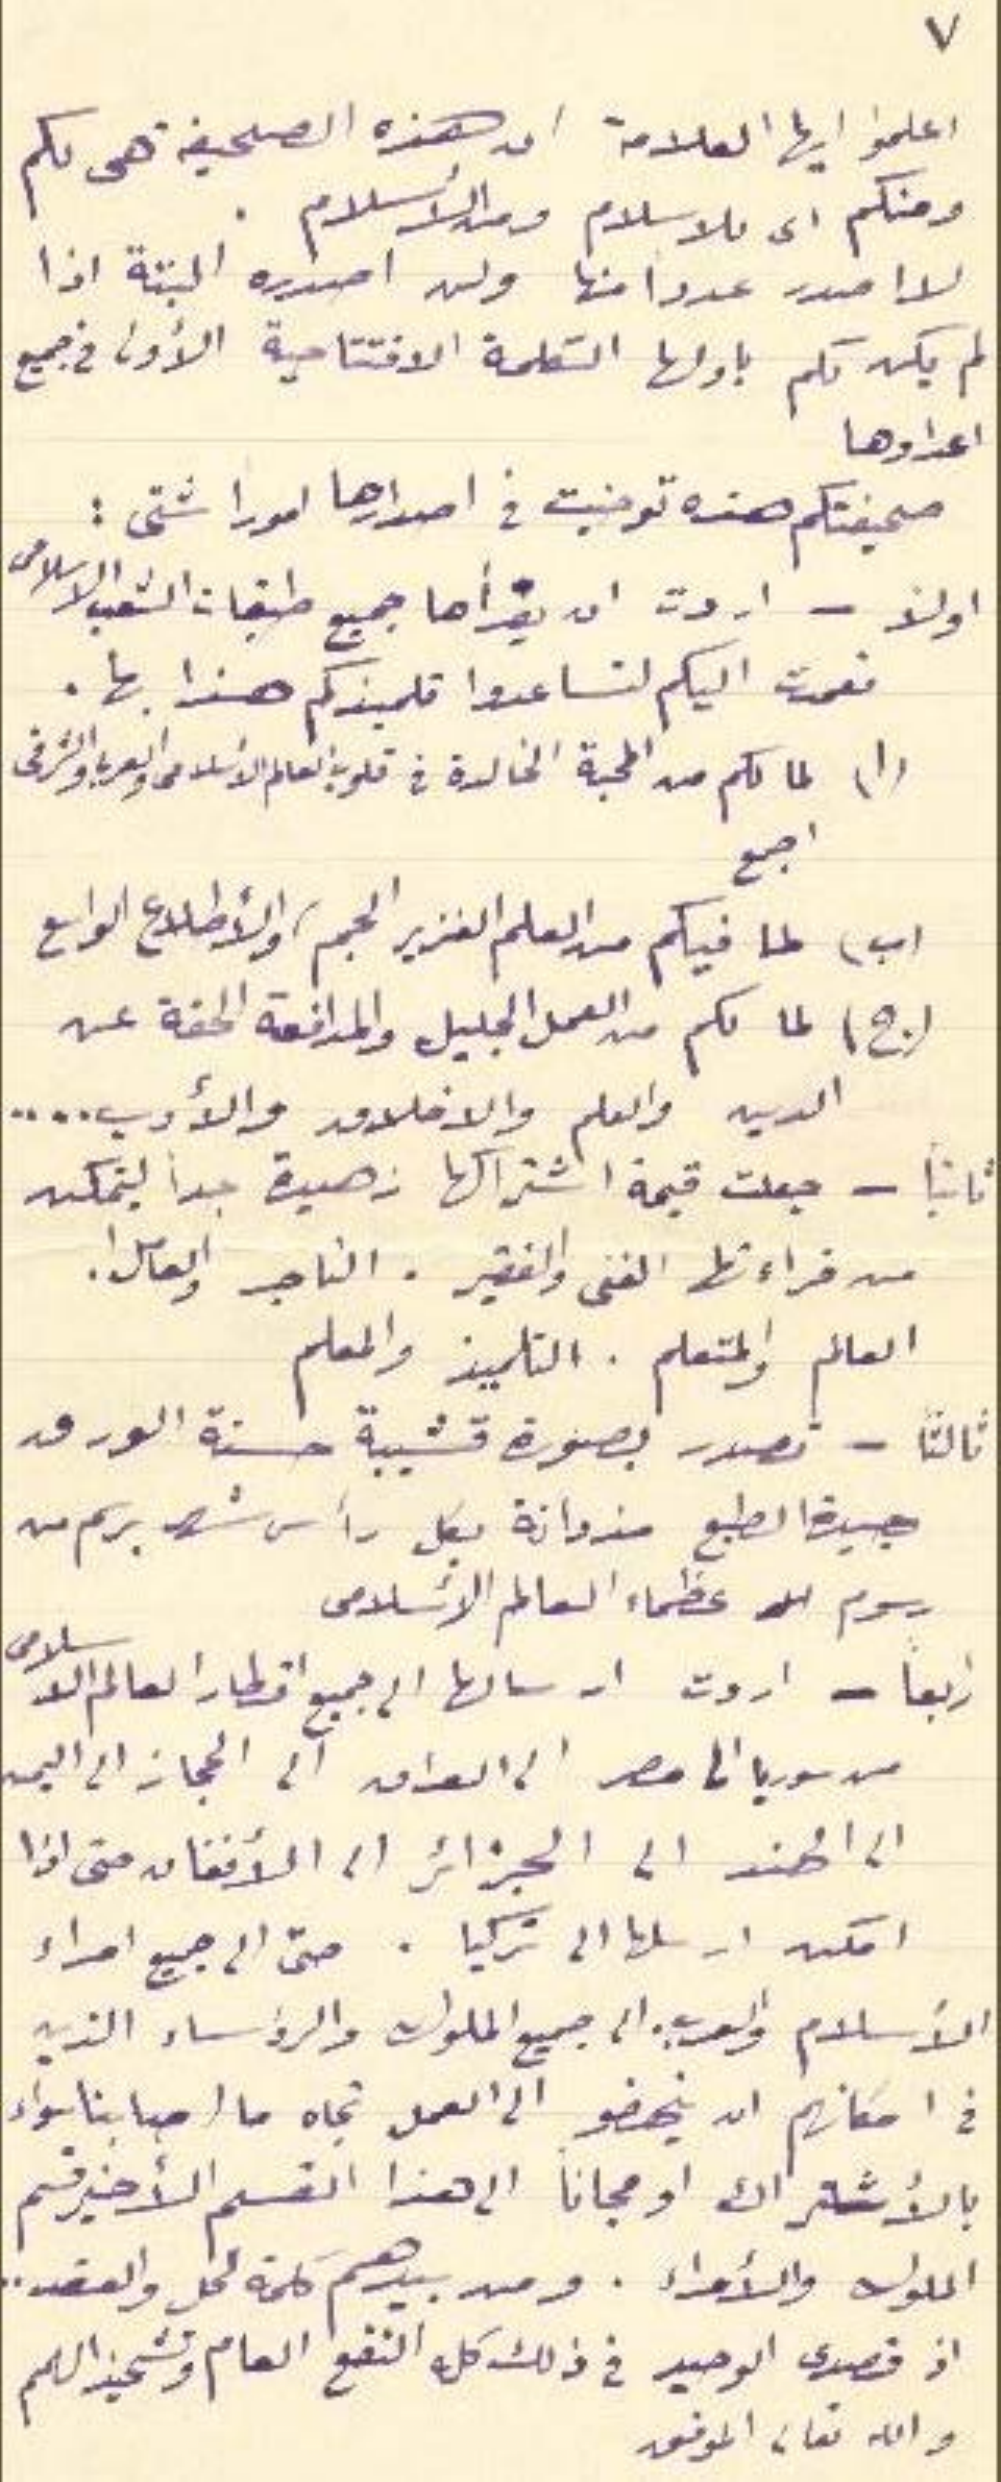 ٧
اعلموا ايها العلامة ان هذه الصحيفة هى لكم
ومنكم اى للاسلام ومن الأسلام .
لا اصدر عدداً منها ولن اصدره البتة اذا
لم يكن لكم باولها الكلمة الافتتاحية الأولى فى جميع
اعدادها
صحيفتكم هذه توخيت فى اصدارها امورا شتى :
اولاً – اردت ان يقرأها جميع طبقات الشعب الاسلامى
فعمدت اليكم لتساعدوا تلميذكم هذا بها .
(ا) لما لكم من المحبة الخالدة فى قلوب العالم الاسلامى والعربى والشرقى
اجمع
(ب) لما فيكم من العلم الغزير الجم، والأطلاع الواسع
(ج) لما لكم من العمل الجليل والمدافعة الحقة عن
الدين والعلم والاخلاق والأدب....
ثانياً – جعلت قيمة اشتراكها زهيدة جداً ليتمكن
من قراءتها الغنى والفقير . التاجر والعامل.
العالم والمتعلم . التلميذ والمعلم
ثالثاً – تصدر بصورة قشيبة حسنة الورق
جيدة الطبع مزدانة بكل رأس شهر برسم من
رسوم عظماء العالم الأسلامى
رابعاً – اردت ارسالها الى جميع اقطار العالم الاسلامى
من سوريا الى مصر الى العراق الى الحجاز الى اليمن
الى الهند الى الجزائر الى الأفغان حتى اذا
امكن ارسلها الى تركيا . حتى الى جميع امراء
الأسلام والعرب. الى جميع الملوك والرؤساء الذين
فى امكانهم ان ينهضو الى العمل تجاه ما اصابنا سواء
بالأشتراك او مجاناً الى هذا القسم الأخير قسم
الملوك والأمراء . ومن بيدهم كلمة الحل والعقد..
اذ قصدى الوحيد فى ذلك كله النفع العام وتشحيذ الهمم
والله تعالى الموفق